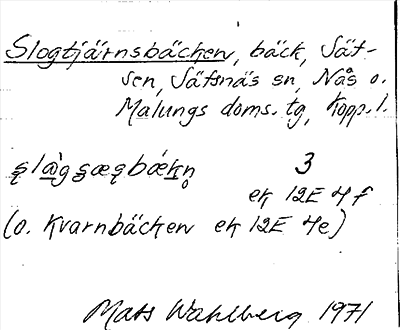 Slogtjärnsbäcken, bäck, Säf-
sen, Säfsnäs sn, Nås o.
Malungs doms. tg, Kopp. l.
3
ek 12E 4f
(o. Kvarnbäcken ek 12E 4e)
Mats Wahlberg 1971